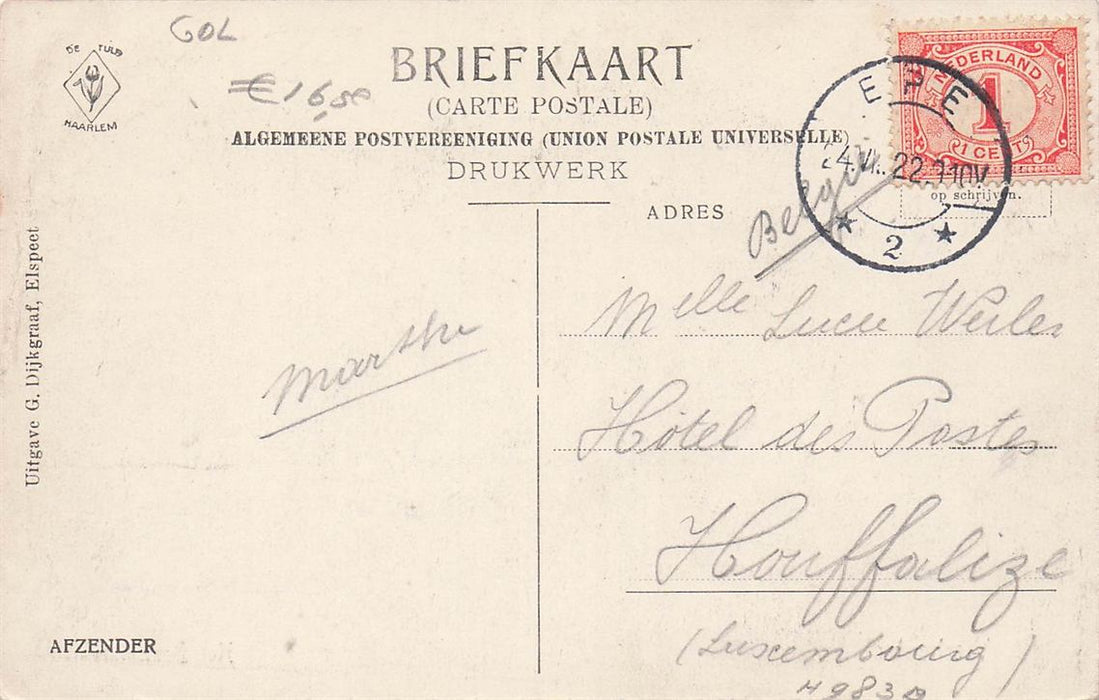 GOL
€ 16,50
DE TULP
HAARLEM
BRIEFKAART
(CARTE POSTALE)
ALGEMEENE POSTVEREENIGING (UNION POSTALE UNIVERSELLE)
DRUKWERK
NEDERLAND
1
1 CENT
EPE
24.VI.22.
2
op schrijven.
ADRES
Belgie
Uitgave G. Dijkgraaf, Elspeet
Marthe
Melle Lucie Weiler
Hôtel des Postes
Houffalize
(Luxembourg)
AFZENDER